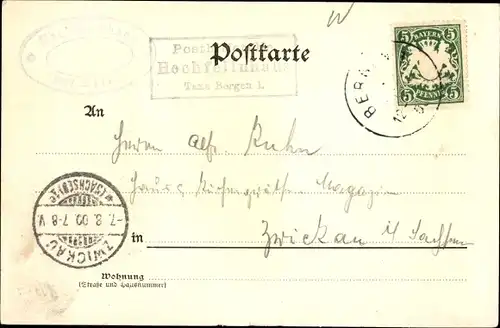 Postkarte
Hochfellnhaus
Taxe Bergen i.
BAYERN
5 5
PFENNIG
BER
12
An
Herrn Kuhn
Haus & Küchengeräthe-Magazin
in Zwickau i/ Sachsen
ZWICKAU
(SACHSEN)
-7. 8. 00. 7-8 V.
Wohnung
(Straße und Hausnummer)